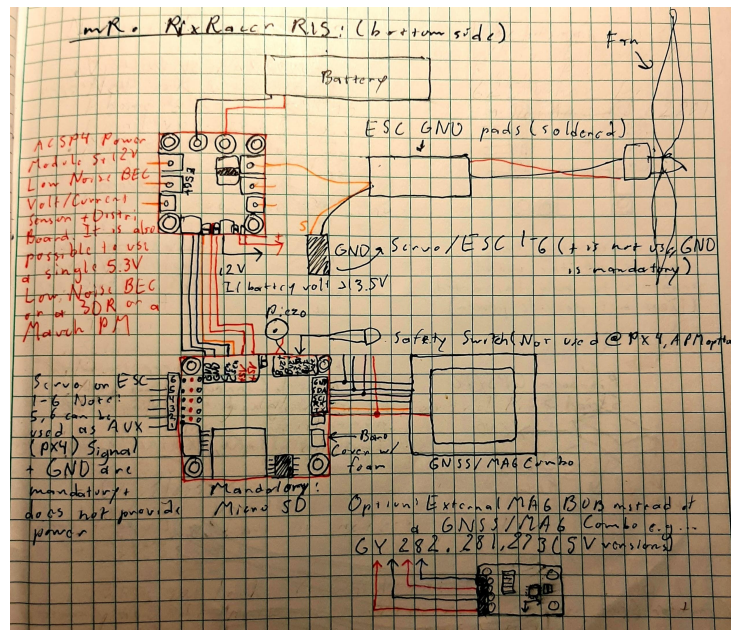 mR. PixRacer R15: (bottom side)
Fan
Battery
ESC GND pads (soldered)
ACSP4 Power
Module 5+12V
Low Noise BEC
Volt/Current
Sensor + Distri
Board. It is also
possible to use
a single 5.3V
Low Noise BEC
on a 3DR or a
Mauch PM
S
GND
Servo/ESC 1-6 (+ is not use, GND
is mandatory)
+
12V
If battery volt > 13.5V
Piezo
Safety Switch (Not used @ PX4, APM optio
Servo or ESC
1-6 Note:
5,6 can be
used as AUX
(PX4) Signal
+ GND are
mandatory +
does not provide
power
6
5
4
3
2
1
Baro
Cover w/
foam
GNSS/MAG Combo
Mandatory:
Micro SD
Option: External MAG BOB instead of
a GNSS/MAG Combo e.g...
GY 282, 281, 273 (5V versions)